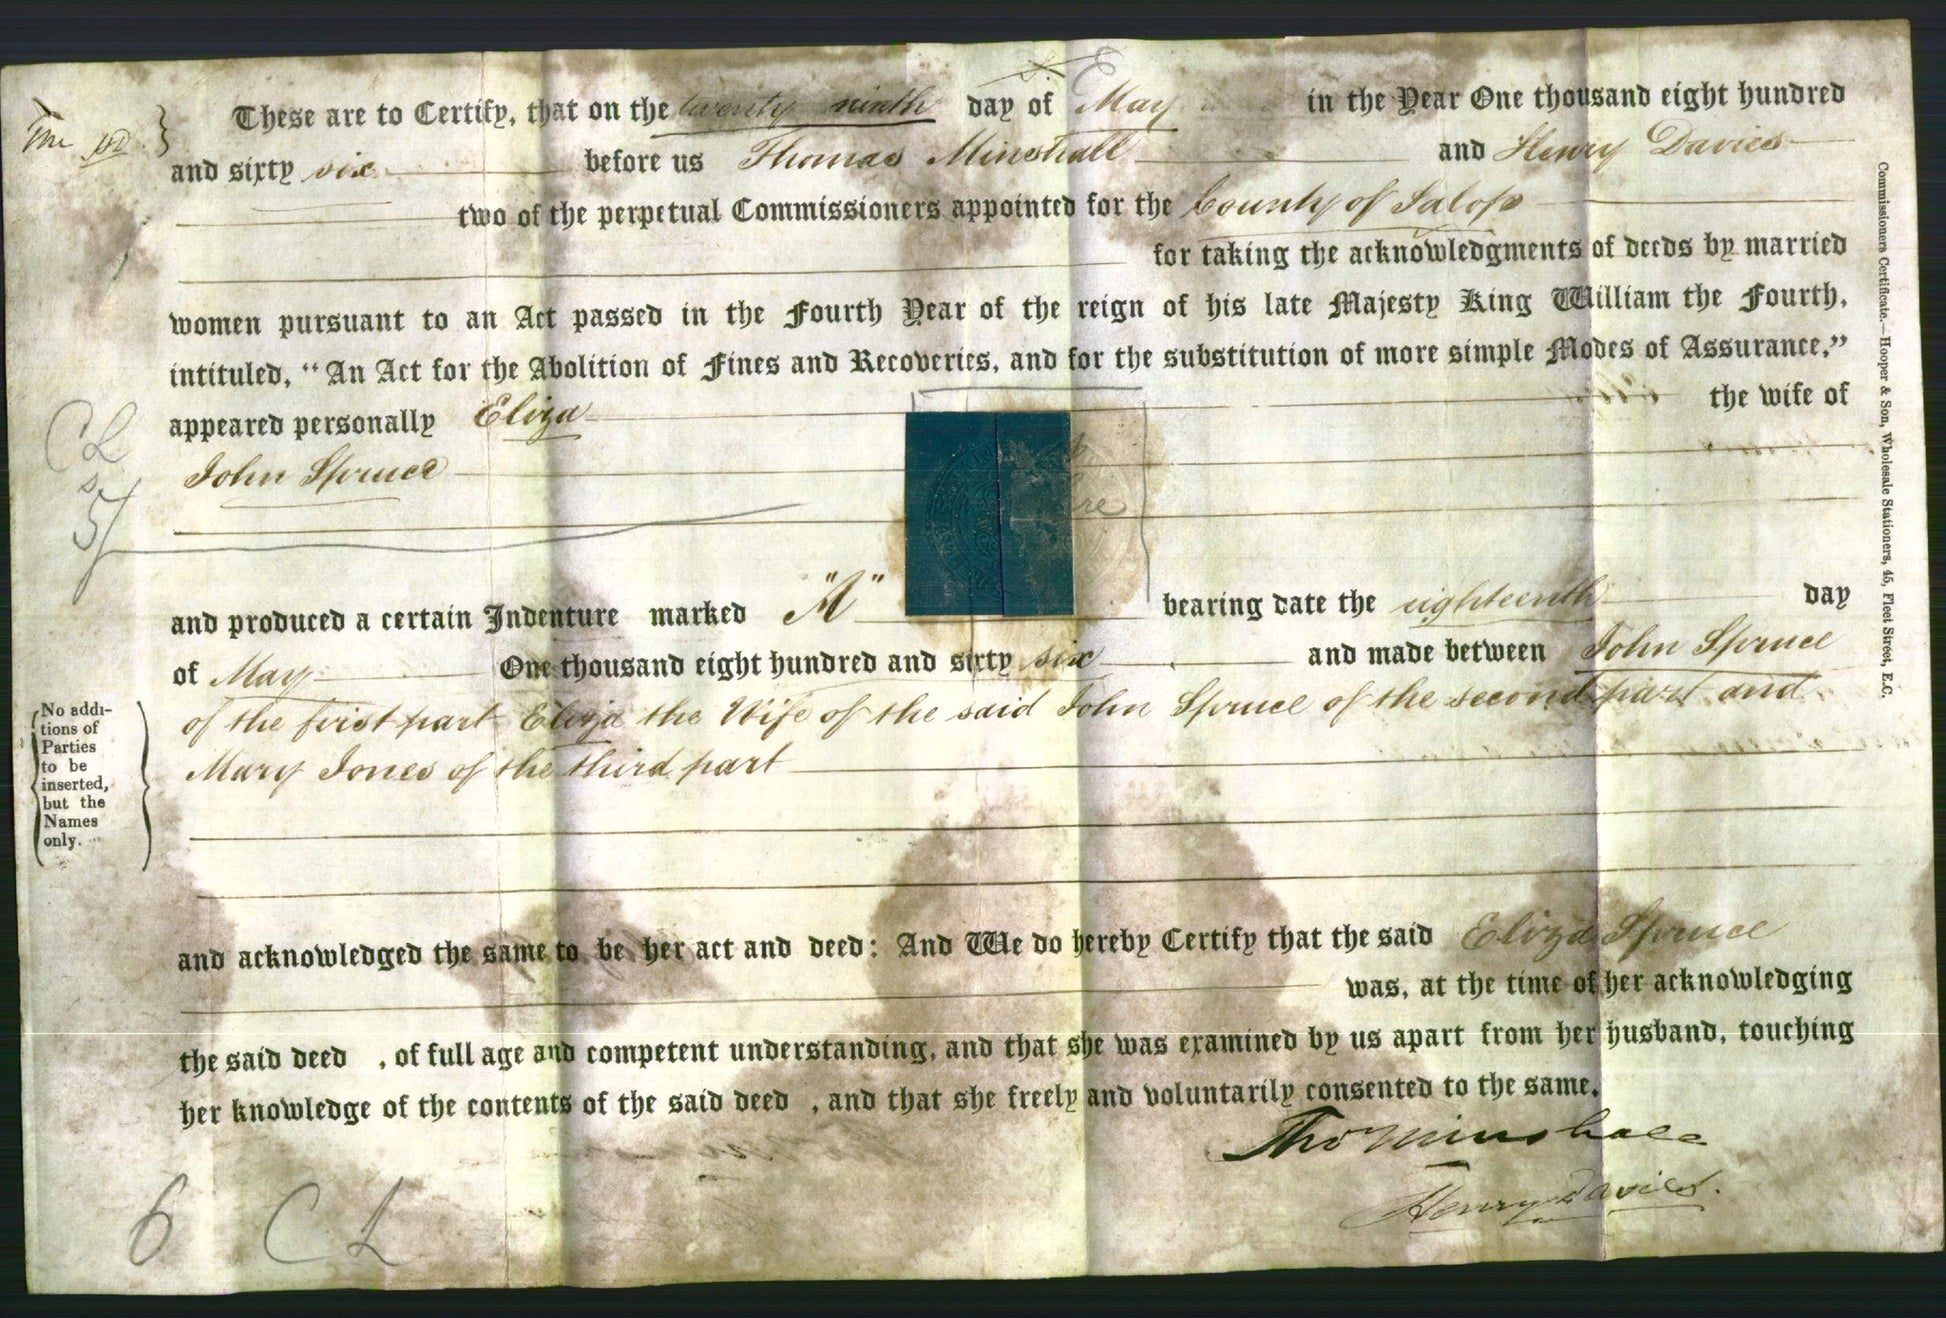 These are to Certify, that on the twenty ninth day of May in the Year One thousand eight hundred
and sixty six before us Thomas Minshall and Henry Davies
two of the perpetual Commissioners appointed for the County of Salop
for taking the acknowledgments of deeds by married
women pursuant to an Act passed in the Fourth Year of the reign of his late Majesty King William the Fourth,
intituled, "An Act for the Abolition of Fines and Recoveries, and for the substitution of more simple Modes of Assurance,"
appeared personally Eliza the wife of
John Spruce
and produced a certain Indenture marked "A" bearing date the eighteenth day
of May One thousand eight hundred and sixty six and made between John Spruce
of the first part Eliza the Wife of the said John Spruce of the second part and
Mary Jones of the third part
and acknowledged the same to be her act and deed: And We do hereby Certify that the said Eliza Spruce
was, at the time of her acknowledging
the said deed , of full age and competent understanding, and that she was examined by us apart from her husband, touching
her knowledge of the contents of the said deed , and that she freely and voluntarily consented to the same.
Tho Minshall
Henry Davies.
CL
5/
No addi-
tions of
Parties
to be
inserted,
but the
Names
only.
6 CL
Commissioners Certificate.—Hooper & Son, Wholesale Stationers, 45, Fleet Street, E.C.